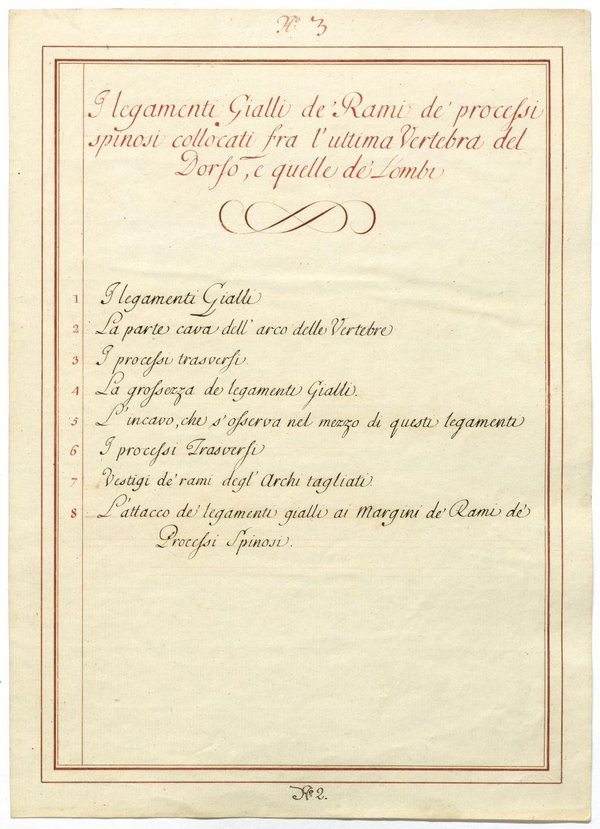 Nº. 3
I legamenti Gialli de' Rami de' processi
spinosi collocati fra l'ultima Vertebra del
Dorso, e quelle de' Lombi
1 I legamenti Gialli
2 La parte cava dell' arco delle Vertebre
3 I processi trasversi.
4 La grossezza de legamenti Gialli.
5 L'incavo, che s'osserva nel mezzo di questi legamenti
6 I processi Trasversi
7 Vestigi de' rami degl' Archi tagliati.
8 L'attacco de' legamenti gialli ai Margini de' Rami de'
Processi Spinosi.
Nº 2.